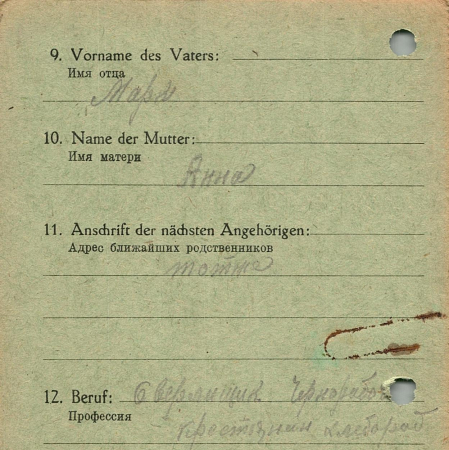 9. Vorname des Vaters:
Имя отца
Марк
10. Name der Mutter:
Имя матери
Анна
11. Anschrift der nächsten Angehörigen:
Адрес ближайших родственников
12. Beruf: Сверлищик Чернорабоч
Профессия
крестянин хлебороб